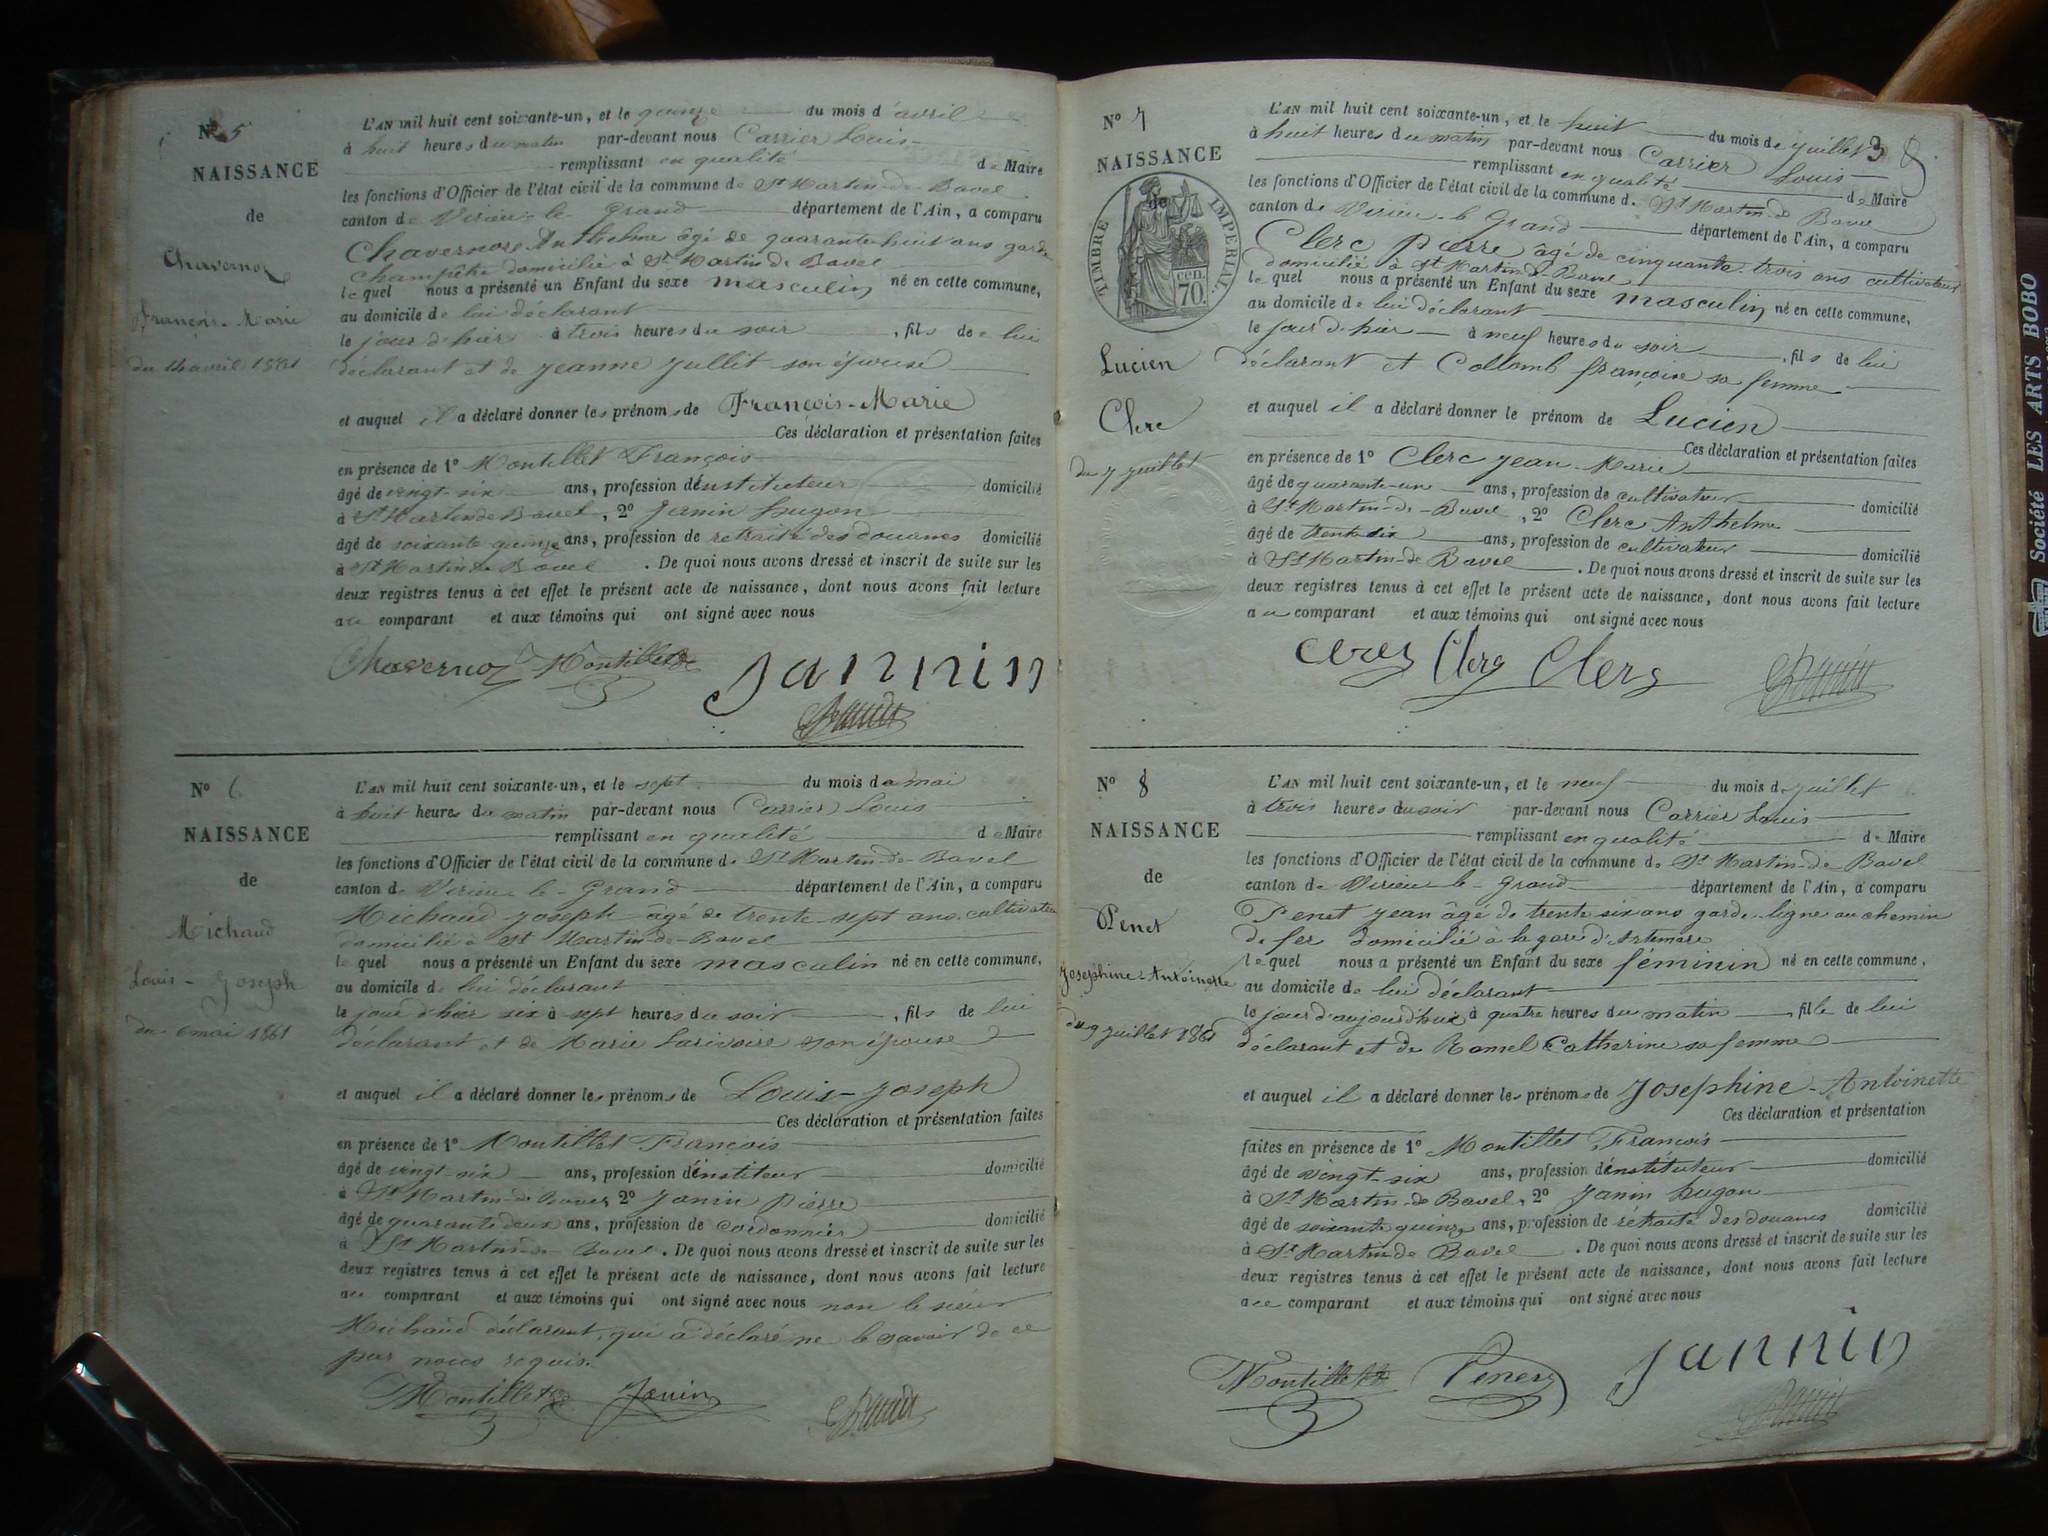 N° 5
NAISSANCE
de
Chavernoz
François-Marie
du 14 avril 1861
L'AN mil huit cent soixante-un, et le quinze du mois d'avril
à huit heures du matin par-devant nous Carrier Louis
remplissant en qualité de Maire
les fonctions d'Officier de l'état civil de la commune de St Martin-de-Bavel
canton de Virieu-le-Grand département de l'Ain, a comparu
Chavernoz Anthelme âgé de quarante-huit ans garde
champêtre domicilié à St Martin de Bavel
lequel nous a présenté un Enfant du sexe masculin né en cette commune,
au domicile de lui déclarant
le jour d'hier à trois heures du soir, fils de lui
déclarant et de Jeanne Jullit son épouse
et auquel il a déclaré donner les prénoms de François-Marie
Ces déclaration et présentation faites
en présence de 1° Montillet François
âgé de vingt-six ans, profession d'instituteur domicilié
à St Martin de Bavel, 2° Janin hugon
âgé de soixante quinze ans, profession de retraité des douanes domicilié
à St Martin de Bavel. De quoi nous avons dressé et inscrit de suite sur les
deux registres tenus à cet effet le présent acte de naissance, dont nous avons fait lecture
au comparant et aux témoins qui ont signé avec nous
Chavernoz Montillet Jannin
N° 6
NAISSANCE
de
Michaud
Louis-Joseph
du 6 mai 1861
L'AN mil huit cent soixante-un, et le sept du mois de mai
à huit heures du matin par-devant nous Carrier Louis
remplissant en qualité de Maire
les fonctions d'Officier de l'état civil de la commune de St Martin-de-Bavel
canton de Virieu-le-Grand département de l'Ain, a comparu
Michaud Joseph âgé de trente-sept ans cultivateur
domicilié à St Martin-de-Bavel
lequel nous a présenté un Enfant du sexe masculin né en cette commune,
au domicile de lui déclarant
le jour d'hier six à sept heures du soir, fils de lui
déclarant et de Marie Larivoire son épouse
et auquel il a déclaré donner les prénoms de Louis-Joseph
Ces déclaration et présentation faites
en présence de 1° Montillet François
âgé de vingt-six ans, profession d'institeur domicilié
à St Martin-de Bavel, 2° Janin Pierre
âgé de quarante deux ans, profession de cordonnier domicilié
à St Martin-de-Bavel. De quoi nous avons dressé et inscrit de suite sur les
deux registres tenus à cet effet le présent acte de naissance, dont nous avons fait lecture
au comparant et aux témoins qui ont signé avec nous non le sieur
Michaud déclarant, qui a déclaré ne le savoir de ce
par nous requis.
Montillet Janin
N° 7
NAISSANCE
de
TIMBRE IMPERIAL.
70 cen.
Lucien
Clerc
du 7 juillet
38
L'AN mil huit cent soixante-un, et le huit du mois de juillet
à huit heures du matin par-devant nous Carrier Louis
remplissant en qualité de Maire
les fonctions d'Officier de l'état civil de la commune de St Martin-de Bavel
canton de Virieu-le Grand département de l'Ain, a comparu
Clerc Pierre âgé de cinquante-trois ans cultivateur
domicilié à St Martin-de-Bavel
lequel nous a présenté un Enfant du sexe masculin né en cette commune,
au domicile de lui déclarant
le jour d'hier à neuf heures du soir, fils de lui
déclarant et Collomb françoise sa femme
et auquel il a déclaré donner le prénom de Lucien
Ces déclaration et présentation faites
en présence de 1° Clerc Jean-Marie
âgé de quarante-un ans, profession de cultivateur domicilié
à St Martin-de-Bavel, 2° Clerc Anthelme
âgé de trente-six ans, profession de cultivateur domicilié
à St Martin-de Bavel. De quoi nous avons dressé et inscrit de suite sur les
deux registres tenus à cet effet le présent acte de naissance, dont nous avons fait lecture
au comparant et aux témoins qui ont signé avec nous
Clerc Clerc
N° 8
NAISSANCE
de
Penet
Josephine-Antoinette
du 9 juillet 1861
L'AN mil huit cent soixante-un, et le neuf du mois de juillet
à trois heures du soir par-devant nous Carrier Louis
remplissant en qualité de Maire
les fonctions d'Officier de l'état civil de la commune de St Martin-de Bavel
canton de Virieu-le-Grand département de l'Ain, a comparu
Penet Jean âgé de trente-six ans garde-ligne au chemin
de fer domicilié à la gare d'Artemare
lequel nous a présenté un Enfant du sexe feminin né en cette commune,
au domicile de lui déclarant
le jour d'aujourd'hui à quatre heures du matin, fille de lui
déclarant et de Ramel Catherine sa femme
et auquel il a déclaré donner les prénoms de Josephine-Antoinette
Ces déclaration et présentation
faites en présence de 1° Montillet François
âgé de vingt-six ans, profession d'instituteur domicilié
à St Martin-de Bavel, 2° Janin hugon
âgé de soixante quinze ans, profession de rétraité des douanes domicilié
à St Martin-de Bavel. De quoi nous avons dressé et inscrit de suite sur les
deux registres tenus à cet effet le présent acte de naissance, dont nous avons fait lecture
au comparant et aux témoins qui ont signé avec nous
Montillet Penet Jannin
Société LES ARTS BOBO